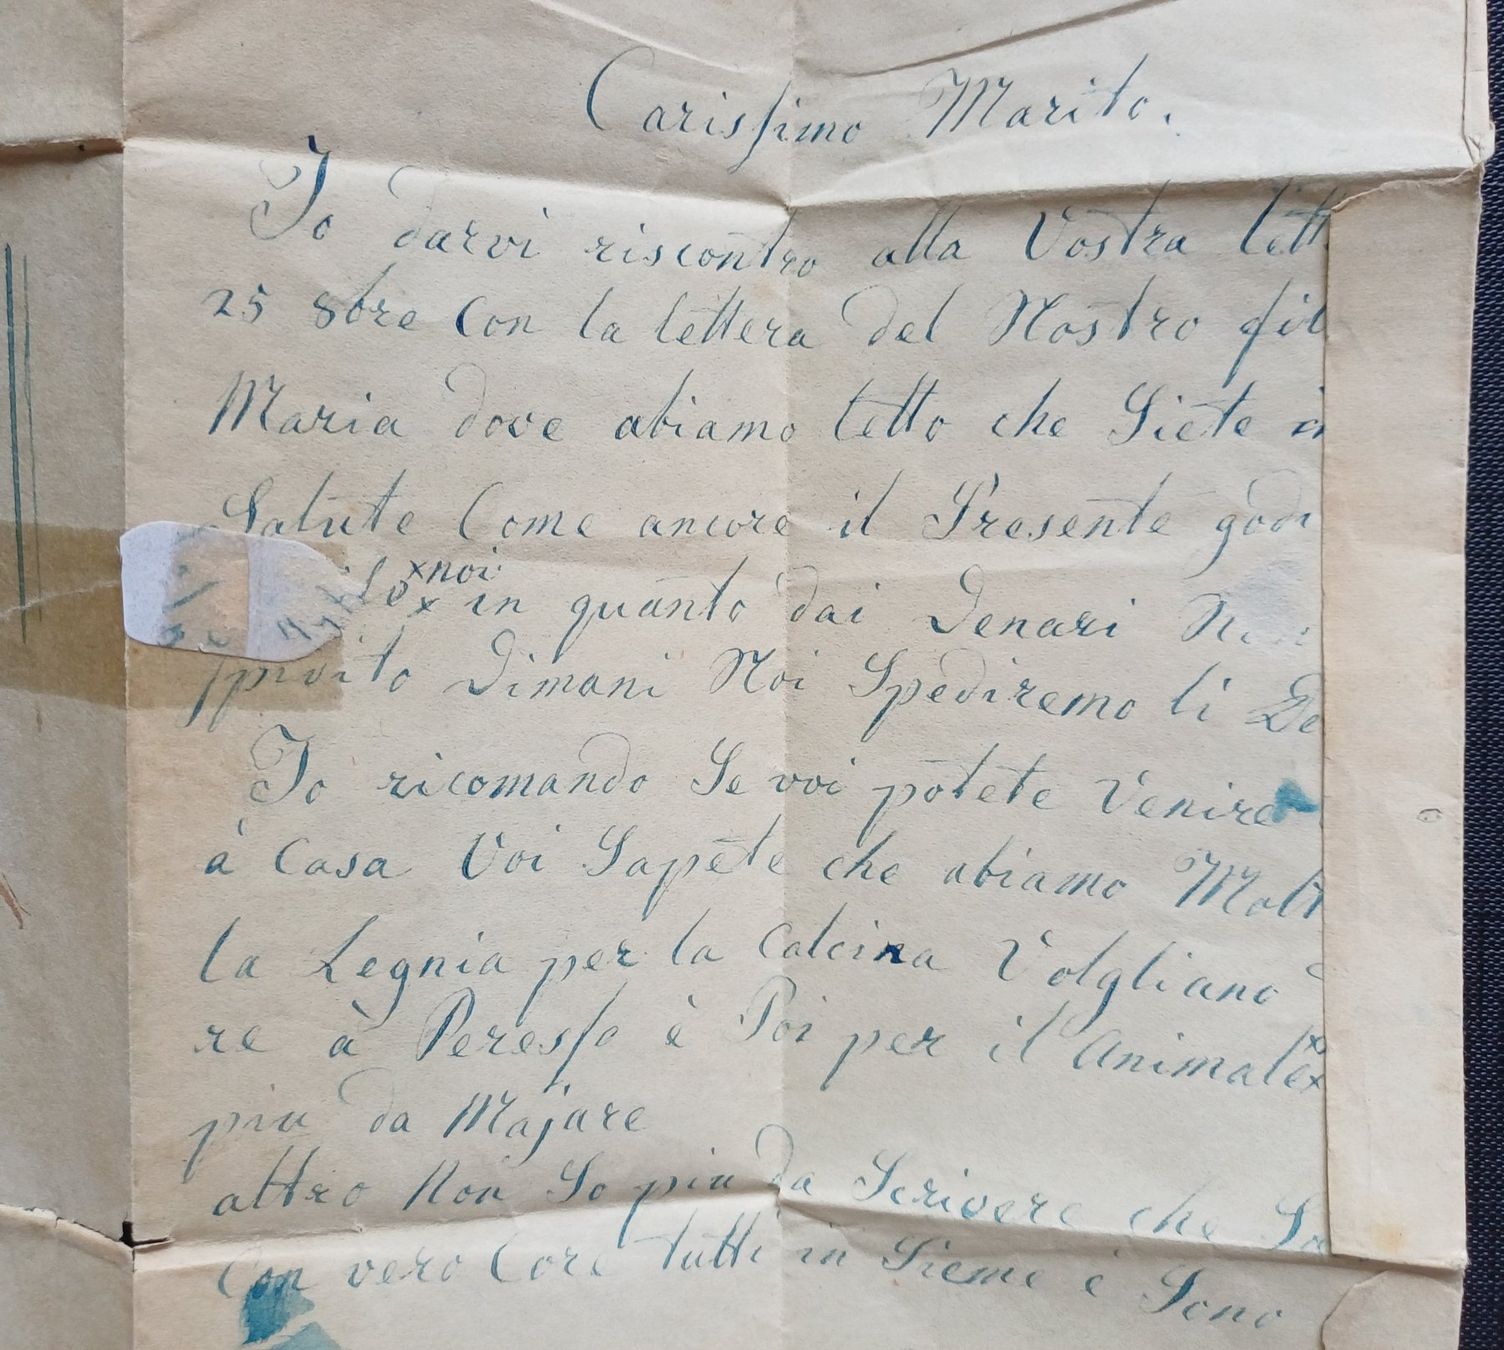 Carissimo Marito.
Io darvi riscontro alla Vostra lett
25 8bre Con la lettera del Nostro fil
Maria dove abiamo letto che Siete in
Salute Come ancore il Presente godi
noi
in quanto dai Denari
Dimani Noi Spediremo li De
Io ricomando Se voi potete Venire
à Casa Voi Sapete che abiamo Molt
la Legnia per la Calcina Volgliano
re à Peresso è Poi per il Animale
piu da Majare
altro Non So piu da Scrivere che Sa
Con vero Core tutti in Sieme e Sono